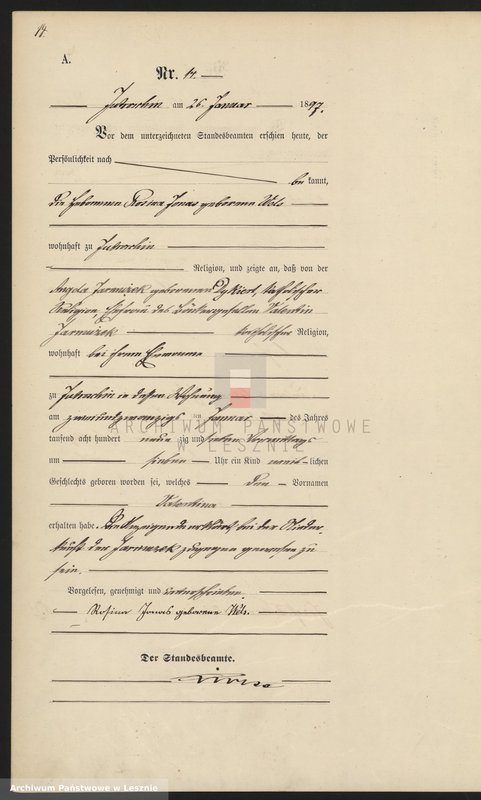 14.
A.
Nr. 14.
Jutroschin am 26. Januar 1897.
Vor dem unterzeichneten Standesbeamten erschien heute, der
Persönlichkeit nach
be kannt,
die Hebamme Rosina Jonas geborene
wohnhaft zu Jutroschin
Religion, und zeigte an, daß von der
geborenen katholischer
Religion, Ehefrau des Valentin
katholischer Religion,
wohnhaft bei ihrem Ehemanne
zu Jutroschin in dessen Wohnung
am ten Januar des Jahres
tausend acht hundert neun zig und sieben Vormittags
um sieben Uhr ein Kind weib-lichen
Geschlechts geboren worden sei, welches den Vornamen
Valentina
erhalten habe. Die Anzeigende erklärt, bei der Nieder-
kunft der zugegen gewesen zu
sein.
Vorgelesen, genehmigt und unterschrieben.
Rosina Jonas geborene
Der Standesbeamte.
ARCHIWUM PAŃSTWOWE
W LESZNIE
Archiwum Państwowe w Lesznie